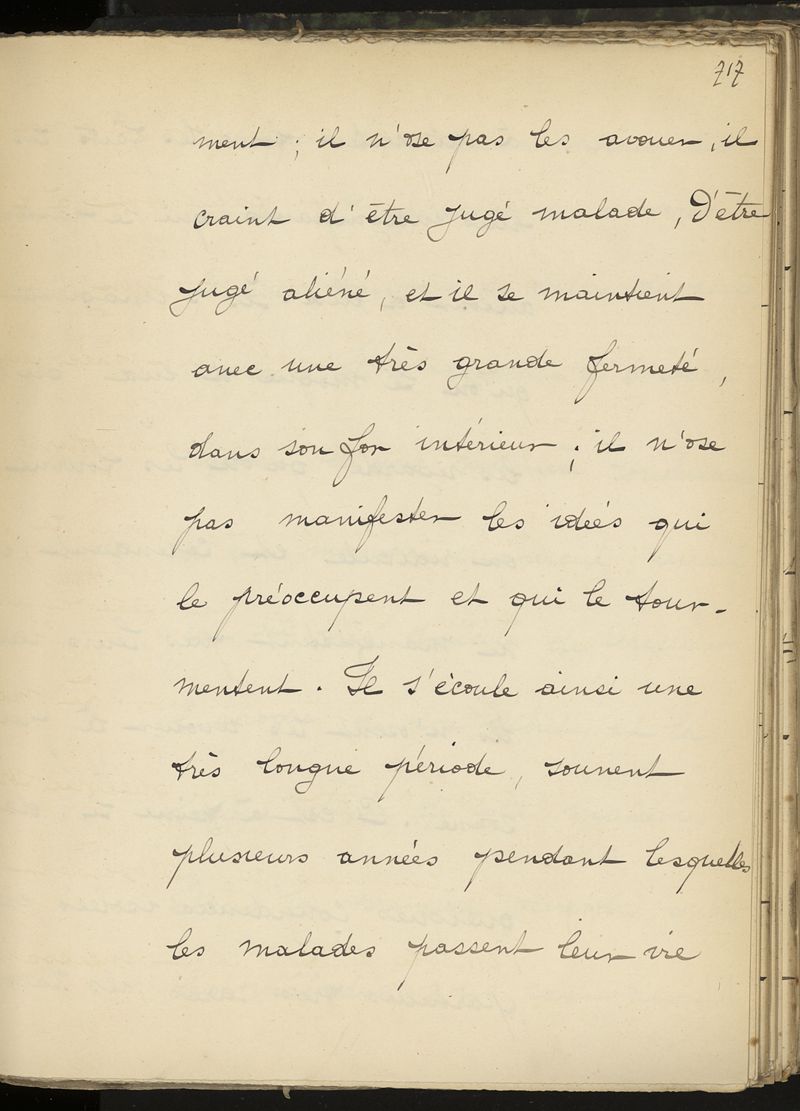 717
ment ; il n'ose pas les avouer, il
craint d'être jugé malade, d'être
jugé aliéné, et il se maintient
avec une très grande fermeté,
dans son for intérieur ; il n'ose
pas manifester les idées qui
le préoccupent et qui le tour-
mentent. Il s'écoule ainsi une
très longue période, souvent
plusieurs années pendant lesquelles
les malades passent leur vie